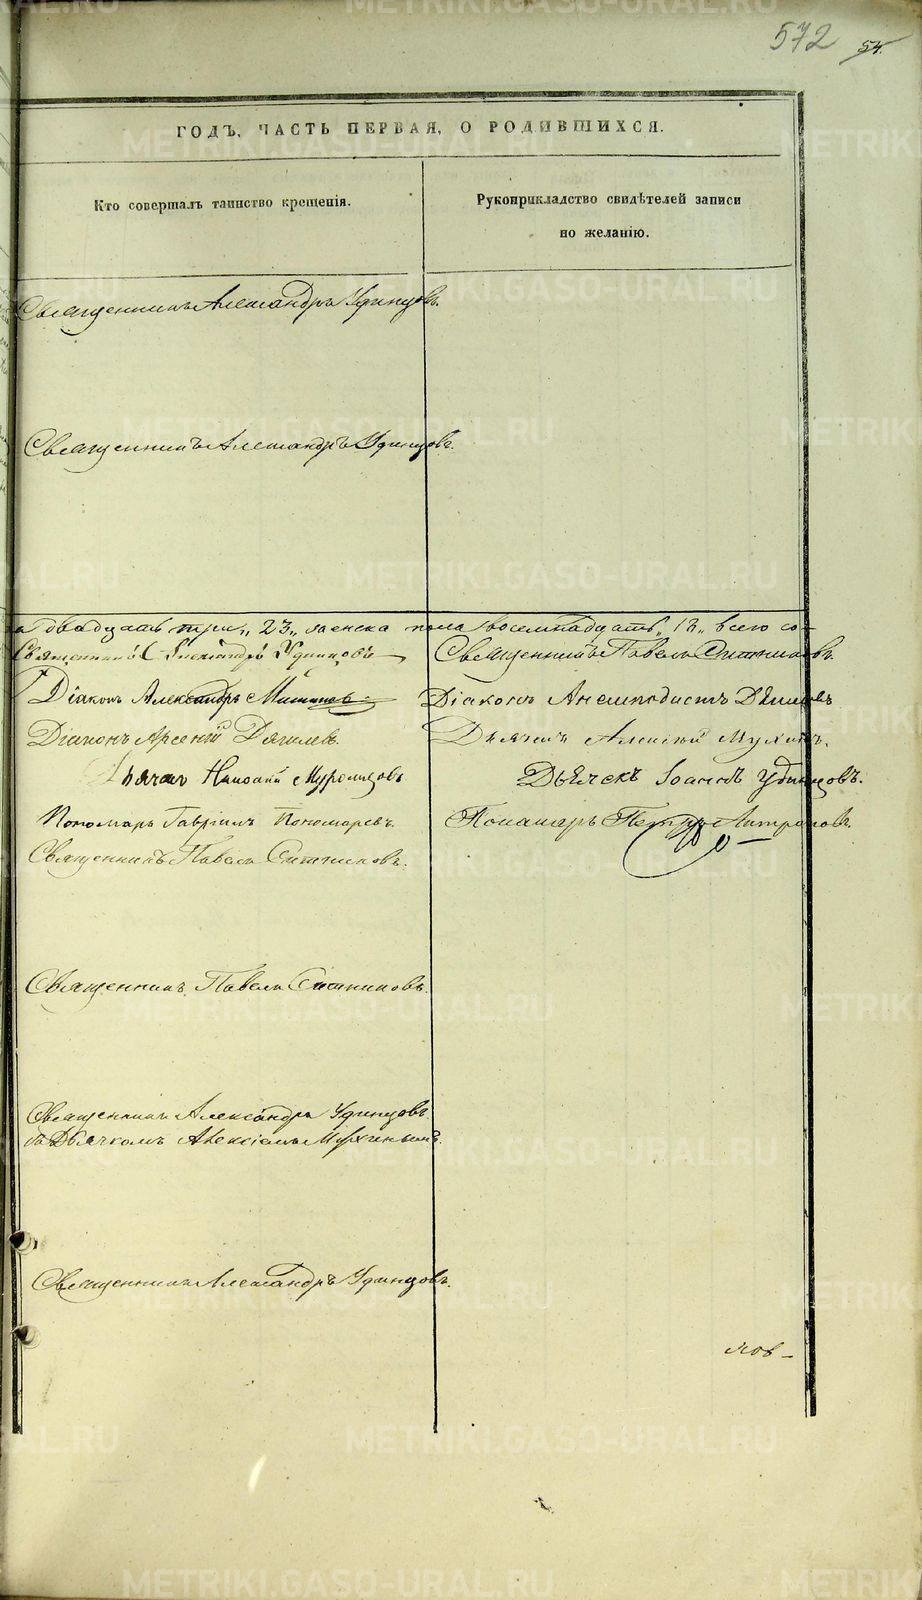 572 54.
ГОДЪ, ЧАСТЬ ПЕРВАЯ, О РОДИВШИХСЯ.
Кто совершалъ таинство крещенія.
Рукоприкладство свидѣтелей записи
по желанію.
Священникъ Александръ Удинцовъ.
Священникъ Александръ Удинцовъ.
а двадцать три „23„ женска пола восемнадцать „18„ всего со-
Священникъ Александръ Удинцовъ
Священникъ Павелъ Ситниковъ.
Діаконъ Александръ
Діаконъ Анемподистъ
Діаконъ Арсеній Дягилевъ.
Дьячекъ Алексѣй Мухинъ.
Дьячекъ Николай Муромцовъ
Дьячекъ Іоаннъ Удинцовъ.
Пономарь Гавріилъ Пономаревъ.
Пономарь Петръ
Священникъ Павелъ Ситниковъ.
Священникъ Павелъ Ситниковъ.
Священникъ Александръ Удинцовъ
съ Дьячкомъ Алексіемъ
Священникъ Александръ Удинцовъ.
METRIKI.GASO-URAL.RU